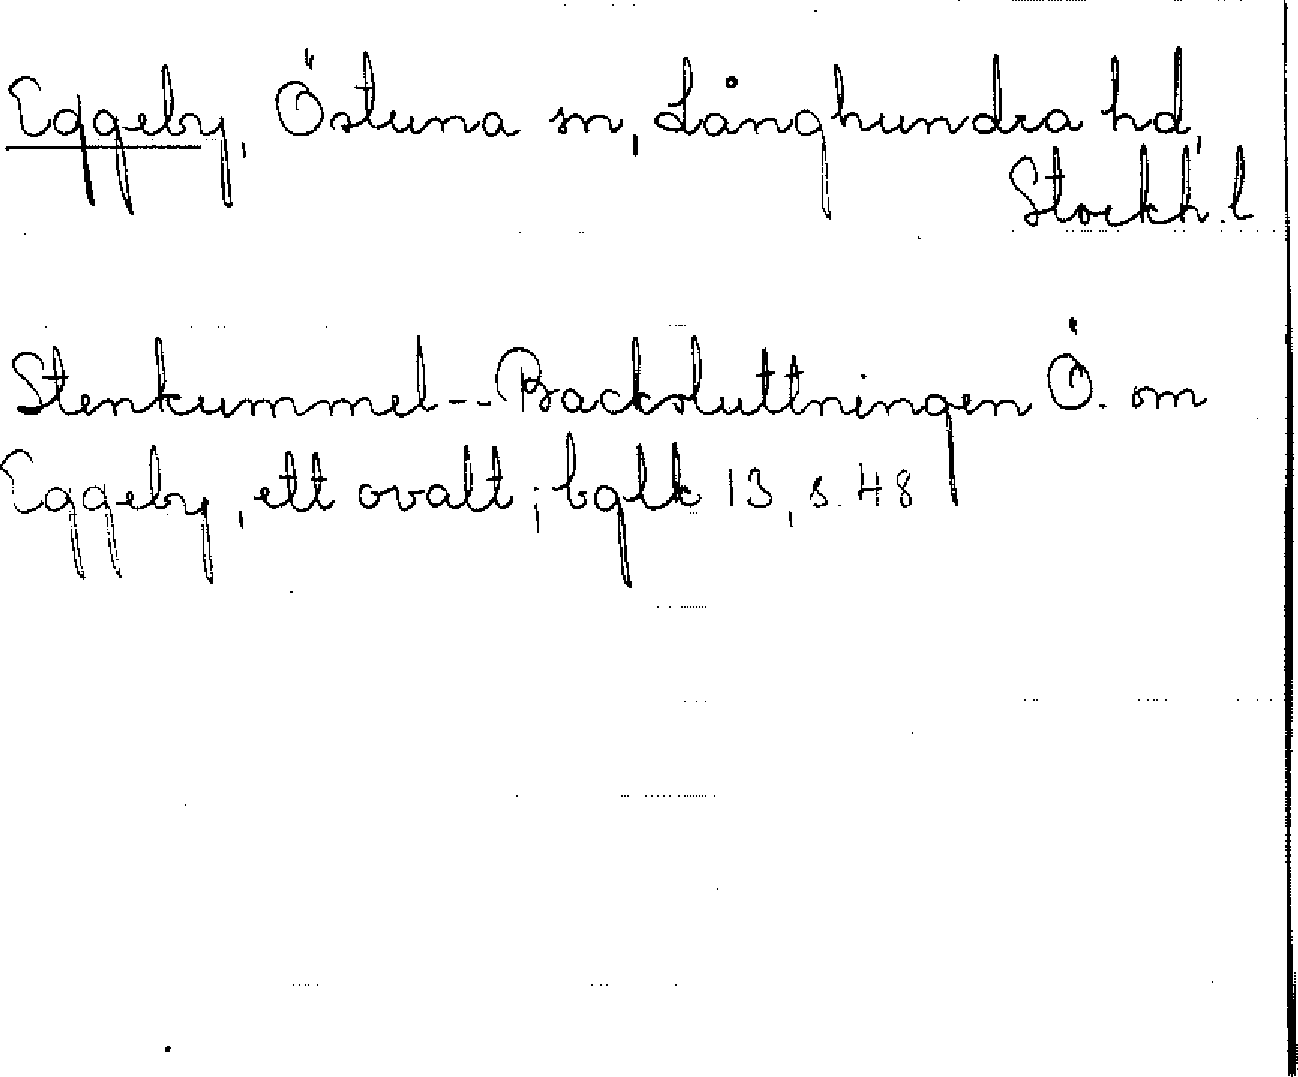 Eggeby, Östuna sn, Långhundra hd,
Stockh. l
Stenkummel -- Backsluttningen Ö. om
Eggeby, ett ovalt; bglk 13, s. 48